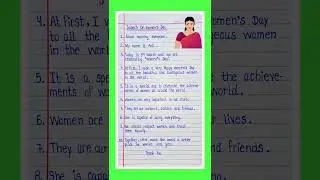 Speech On Women's Day
1. Good morning everyone.
2. My name is Anil.
3. Today is 8th March and we are
celebrating "Women's Day".
4. At first, I wish a very Happy Women's Day
to all the beautiful and courageous women
in the world.
5. It is a special day to celebrate the achieve-
ments of women all around the world.
6. Women are very important in our lives.
7. They are our mothers, sisters and friends.
8. She is capable of doing everything.
9. We should respect women and treat
them equally.
10. Together, let's make the world a better
place for women and girls.
Thank You
4. At first, I w
to all the
in the world
5. It is a spe
ments of w
6. Women are
7. They are our
8. She is capa
omen's Day
geous women
he achieve-
orld.
r lives.
friends.